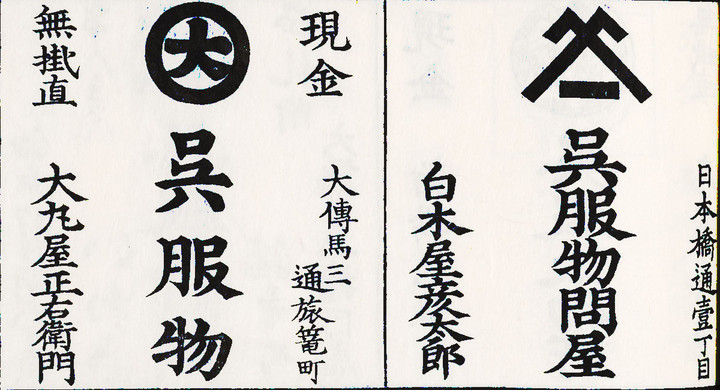 日本橋通壹丁目
呉服物問屋
白木屋彦太郎
現金
大傳馬三
通旅篭町
大
呉服物
無掛直
大丸屋正右衛門